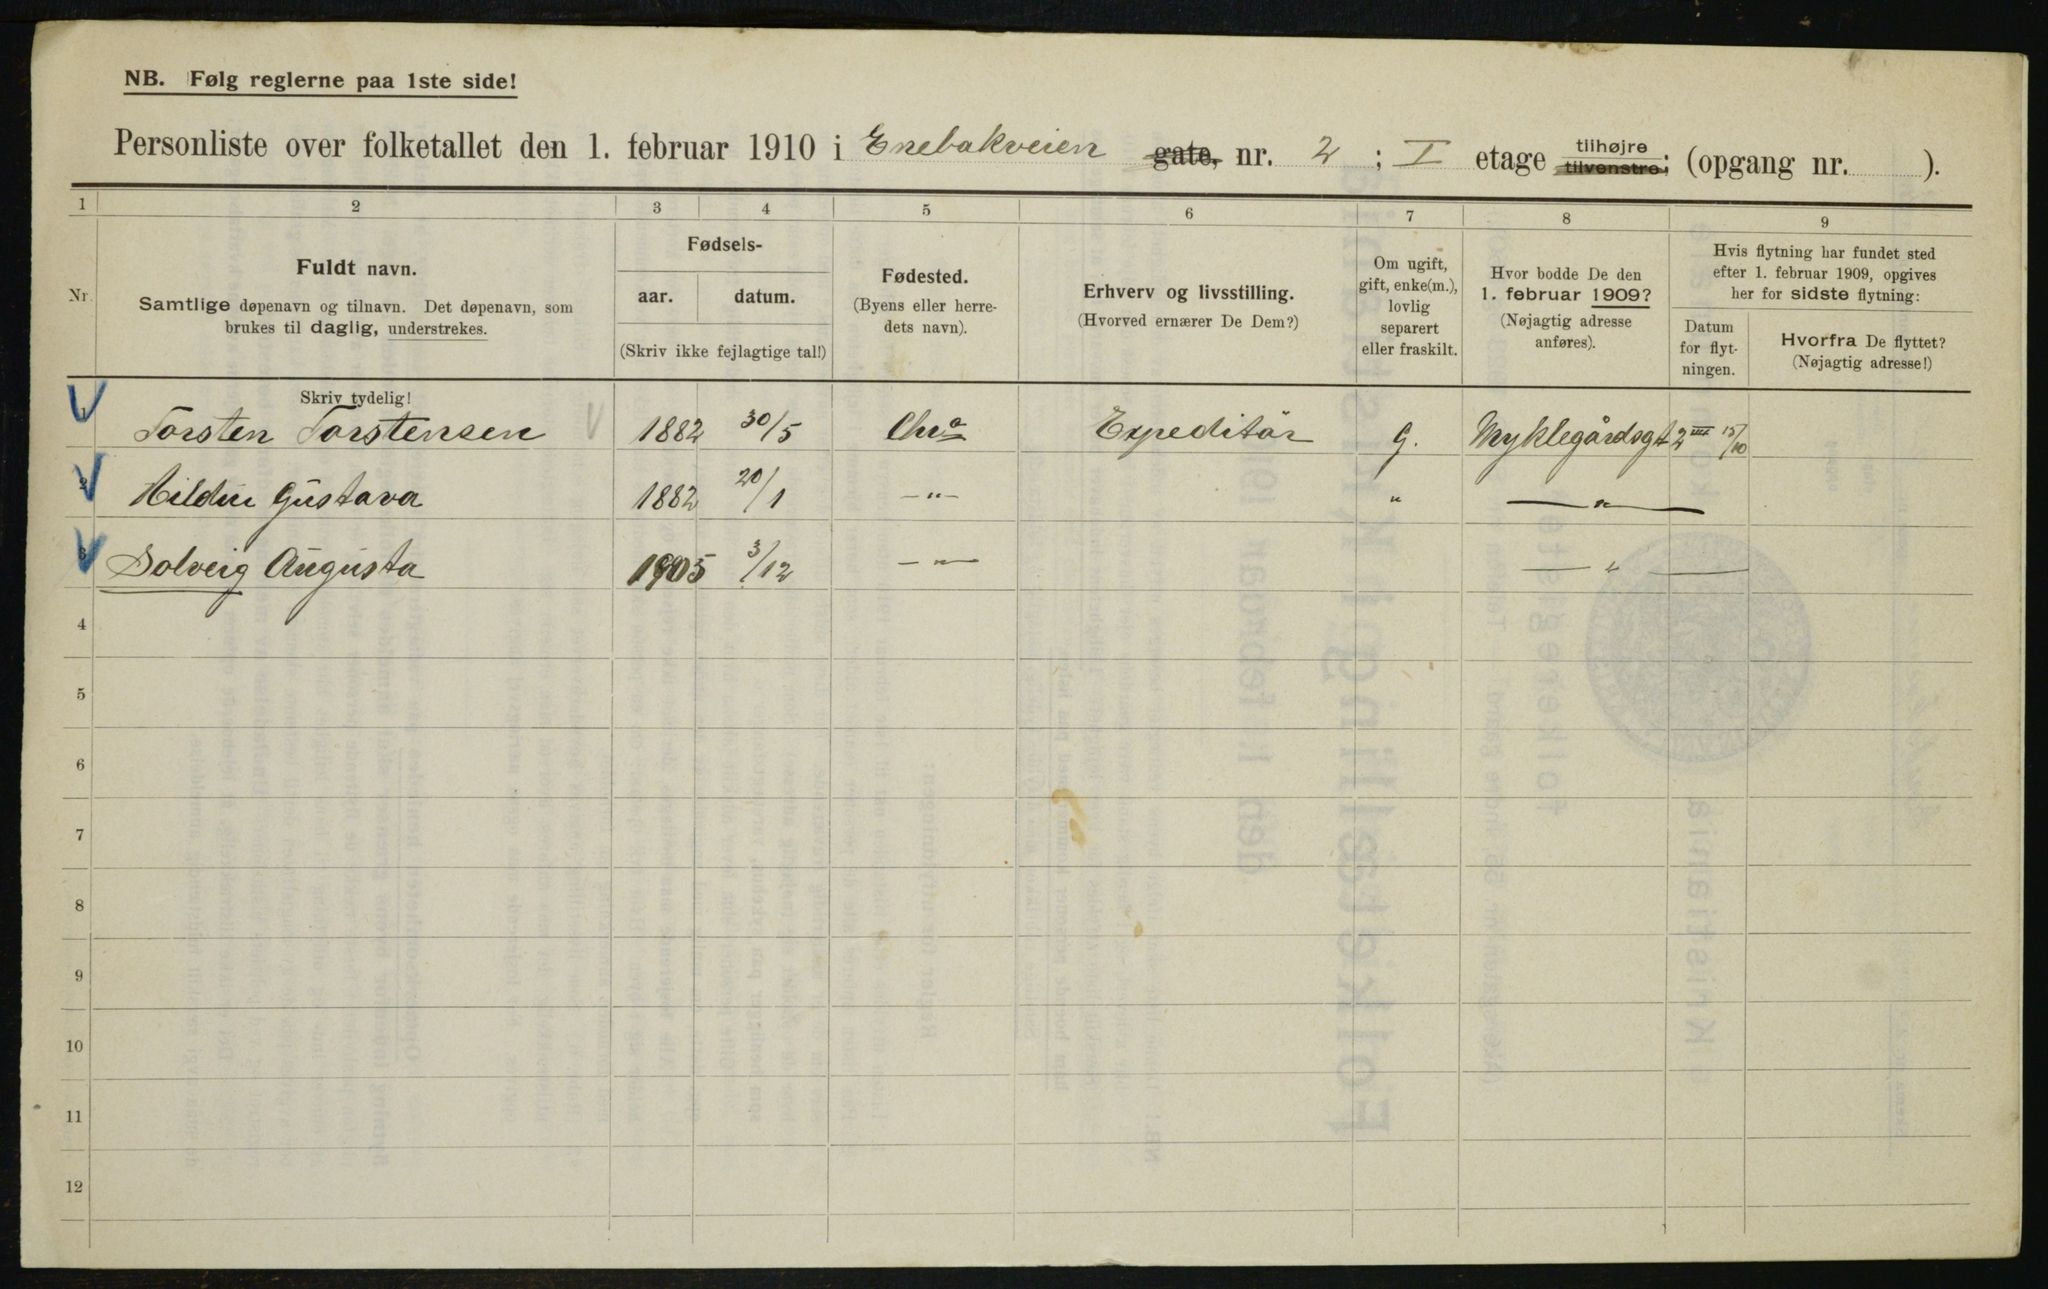 NB. Følg reglerne paa 1ste side!
Personliste over folketallet den 1. februar 1910 i Enebakveien gate, nr. 2 ; I etage tilhøjre tilvenstre; (opgang nr. ).
1 2 3 4 5 6 7 8 9
Nr.
Fuldt navn.
Samtlige døpenavn og tilnavn. Det døpenavn, som
brukes til daglig, understrekes.
Fødsels-
aar. datum.
(Skriv ikke fejlagtige tal!)
Fødested.
(Byens eller herre-
dets navn).
Erhverv og livsstilling.
(Hvorved ernærer De Dem?)
Om ugift,
gift, enke(m.),
lovlig
separert
eller fraskilt.
Hvor bodde De den
1. februar 1909?
(Nøjagtig adresse
anføres).
Hvis flytning har fundet sted
efter 1. februar 1909, opgives
her for sidste flytning:
Datum
for flyt-
ningen.
Hvorfra De flyttet?
(Nøjagtig adresse!)
Skriv tydelig!
1 Torsten Torstensen 1882 30/5 Chra Expeditör G. Myklegårdsgt 2 III 15/10
2 Gustava 1882 20/1 —"— " —"—
3 Solveig Augusta 1905 3/12 —"— —"—
4
5
6
7
8
9
10
11
12